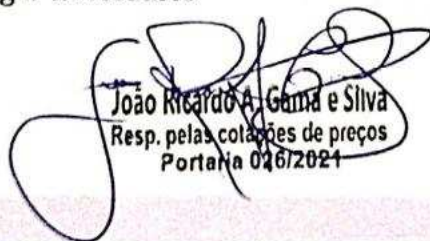 João Ricardo A. Gama e Silva
Resp. pelas cotações de preços
Portaria 026/2021